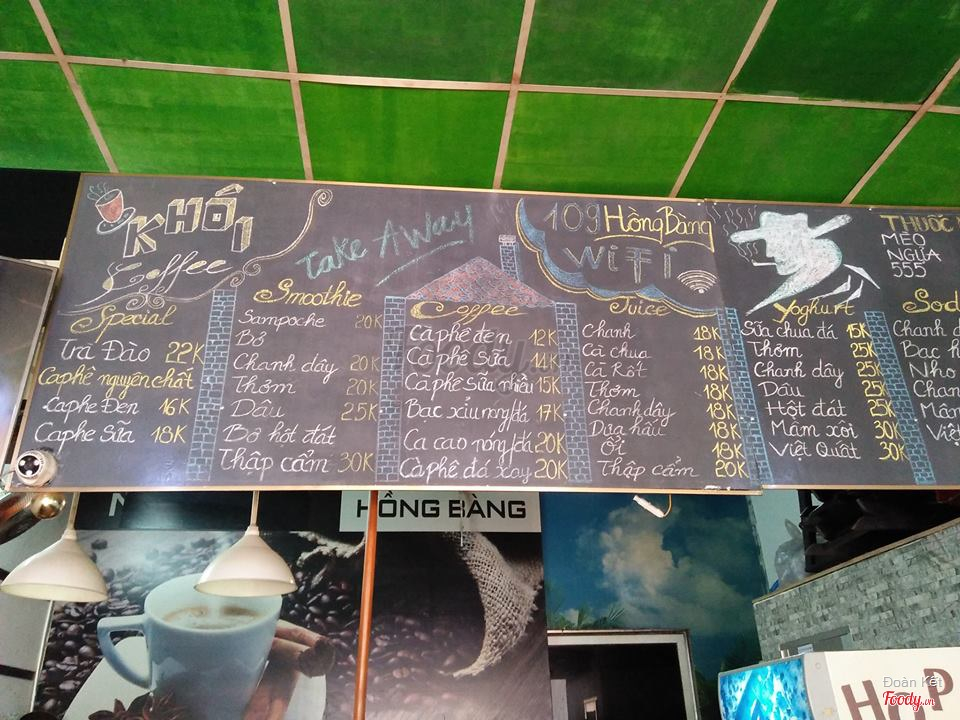 KHÓI
Coffee
Take Away
109 Hồng Bàng
WiFi
THUỐC
MÈO
NGỰA
555
Special
Trà Đào 22K
Caphê nguyên chất
Caphe Đen 16K
Caphe Sữa 18K
Smoothie
Sampoche 20K
Bơ
Chanh dây 20K
Thơm 20K
Dâu 25K
Bơ hột đát
Thập cẩm 30K
Coffee
Cà phê đen 12K
Cà phê Sữa 14K
Cà phê Sữa nhiều 15K
Bạc xỉu nóng/đá 17K
Ca cao nóng/đá 20K
Cà phê đá xay 20K
Juice
Chanh 18K
Cà chua 18K
Cà Rốt 18K
Thơm 18K
Chanh dây 18K
Dưa hấu 18K
Ổi 18K
Thập cẩm 20K
Yoghurt
Sữa chua đá 15K
Thơm 25K
Chanh dây 25K
Dâu 25K
Hột đát 25K
Mâm xôi 30K
Việt Quất 30K
Sod
Chanh đ
Bạc h
Nho
Chan
Mâm
Việ
HỒNG BÀNG
HOP
Đoàn Kết
Foody.vn